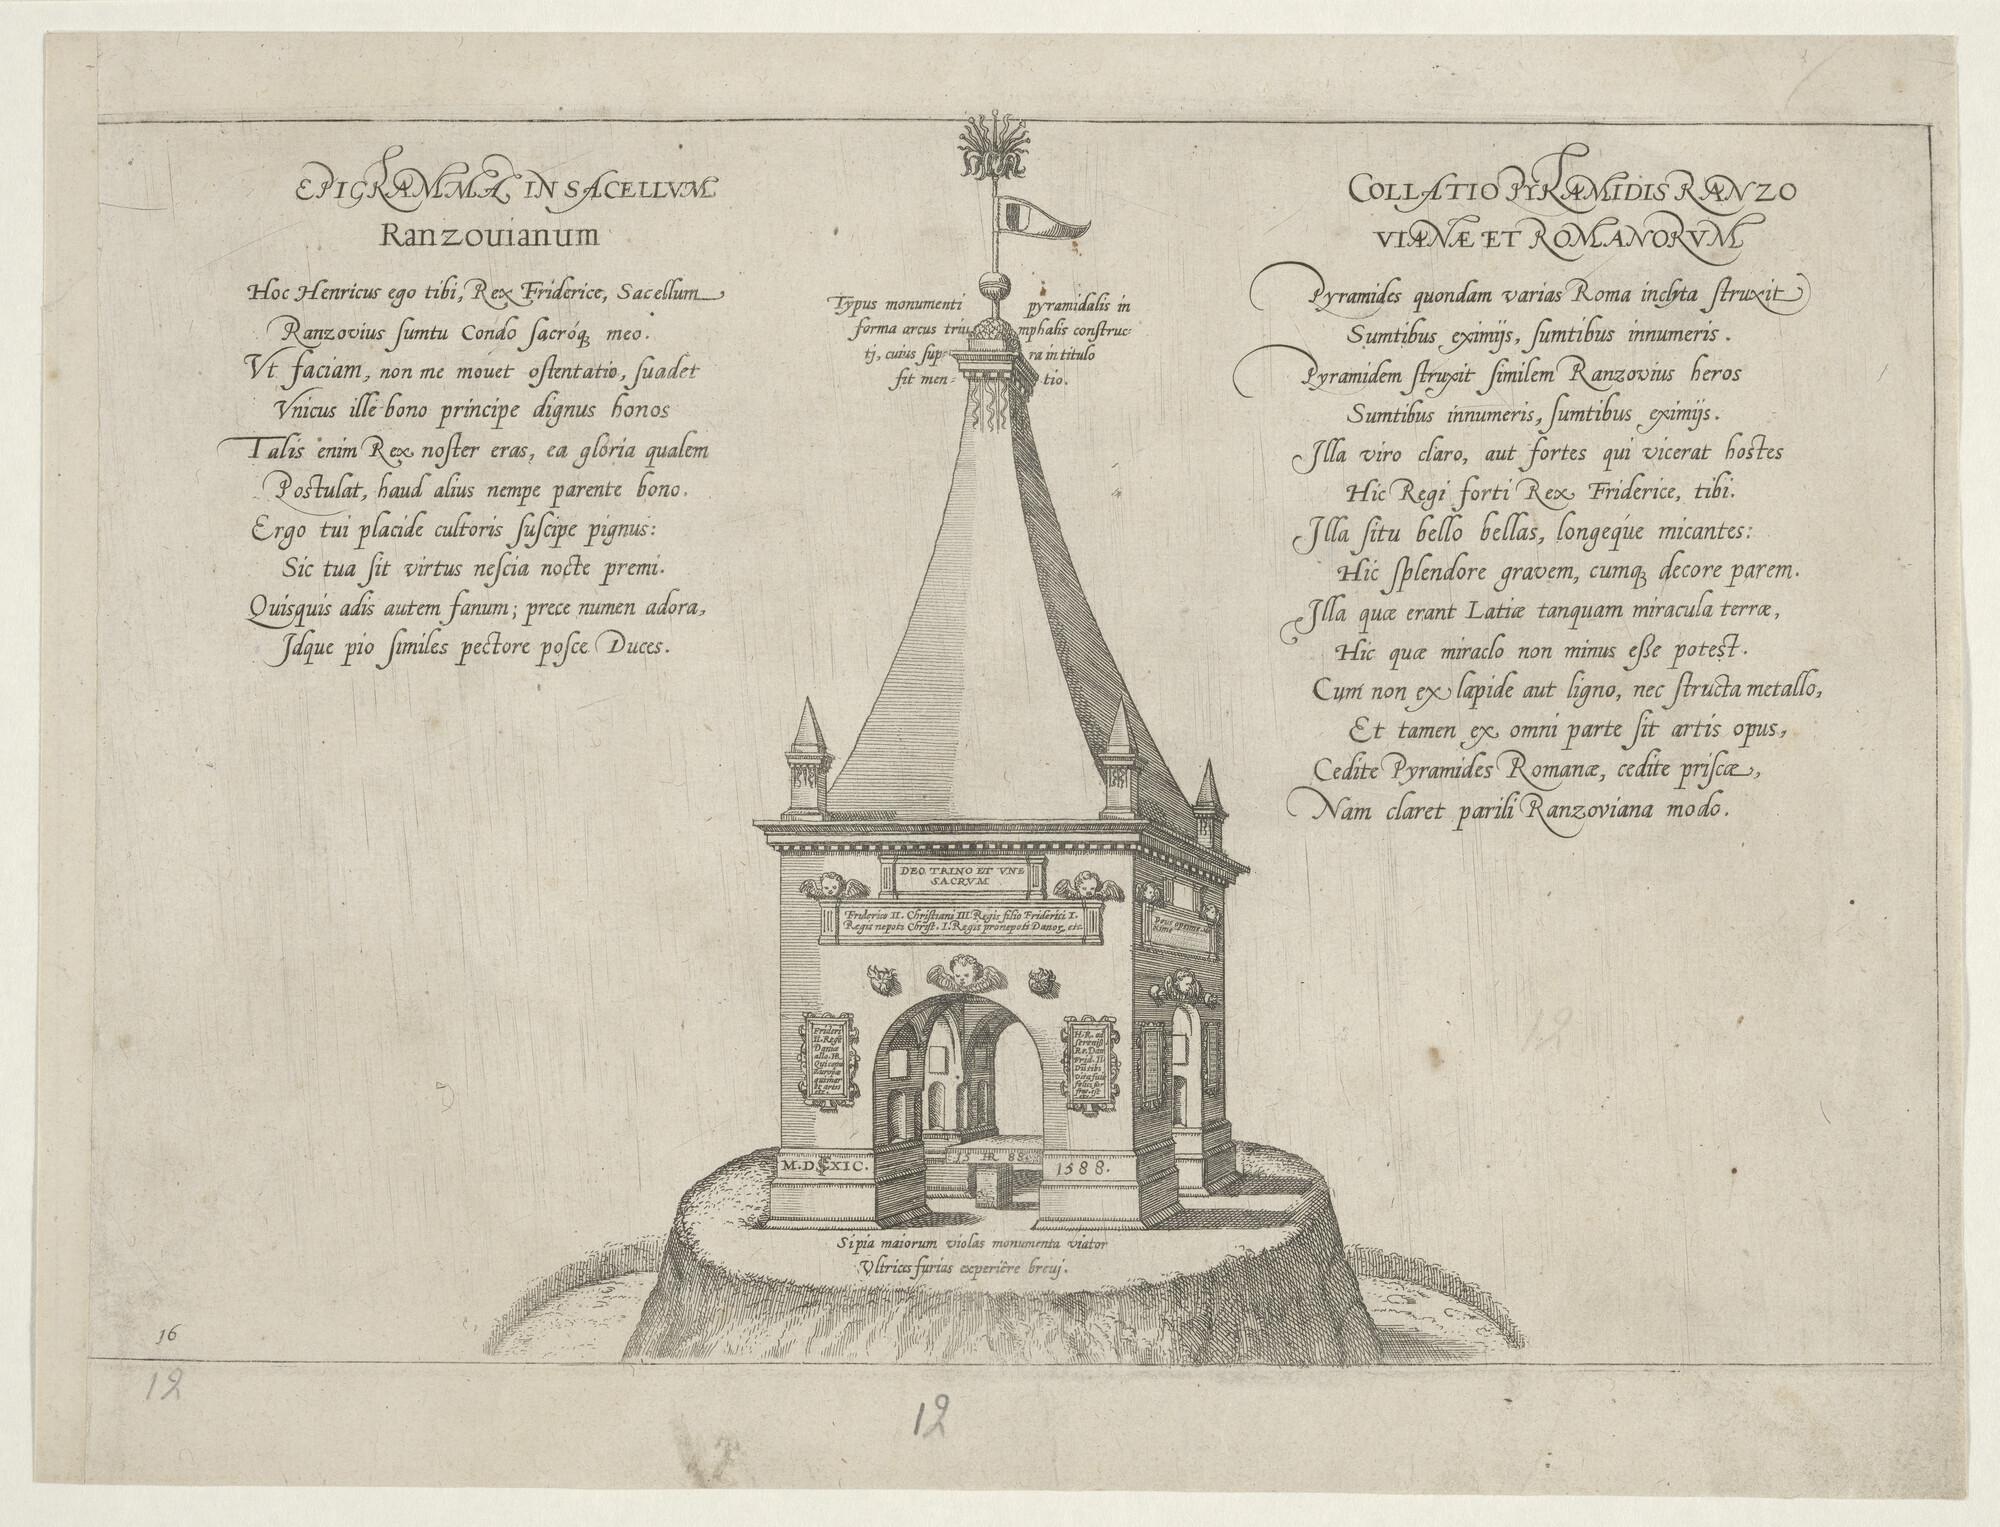 EPIGRAMMA IN SACELLVM
Ranzouianum
Hoc Henricus ego tibi, Rex Friderice, Sacellum
Ranzovius ſumtu Condo ſacróq meo.
Vt faciam, non me mouet oſtentatio, ſuadet
Vnicus ille bono principe dignus honos
Talis enim Rex noſter eras, ea gloria qualem
Poſtulat, haud alius nempe parente bono.
Ergo tui placide cultoris ſuſcipe pignus:
Sic tua ſit virtus neſcia nocte premi.
Quisquis adis autem fanum; prece numen adora,
Idque pio ſimiles pectore poſce Duces.
Typus monumenti pyramidalis in
forma arcus triumphalis conſtruc-
tj, cuius ſupra in titulo
fit mentio.
COLLATIO PYRAMIDIS RANZO
VIANÆ ET ROMANORVM
Pyramides quondam varias Roma inclyta ſtruxit
Sumtibus eximijs, ſumtibus innumeris.
Pyramidem ſtruxit ſimilem Ranzovius heros
Sumtibus innumeris, ſumtibus eximijs.
Illa viro claro, aut fortes qui vicerat hostes
Hic Regi forti Rex Friderice, tibi.
Illa ſitu bello bellas, longeque micantes:
Hic ſplendore gravem, cumq decore parem.
Illa quæ erant Latiæ tanquam miracula terræ,
Hic quæ miraclo non minus eſſe potest.
Cum non ex lapide aut ligno, nec ſtructa metallo,
Et tamen ex omni parte ſit artis opus,
Cedite Pyramides Romanæ, cedite priſcæ,
Nam claret parili Ranzoviana modo.
DEO TRINO ET VNE
SACRVM
Friderico II. Chriſtiani III. Regis filio Friderici I.
Regis nepoti Chriſt. I. Regis pronepoti Danor, etc.
Frideri
II. Regis
Daniæ
H. R. ad
ſereniſſ.
Re. Dan
Frid. II
Dii tibi
15 HR 88.
1588.
Si pia maiorum violas monumenta viator
Vltrices furias experiêre breuj.
16
12
12